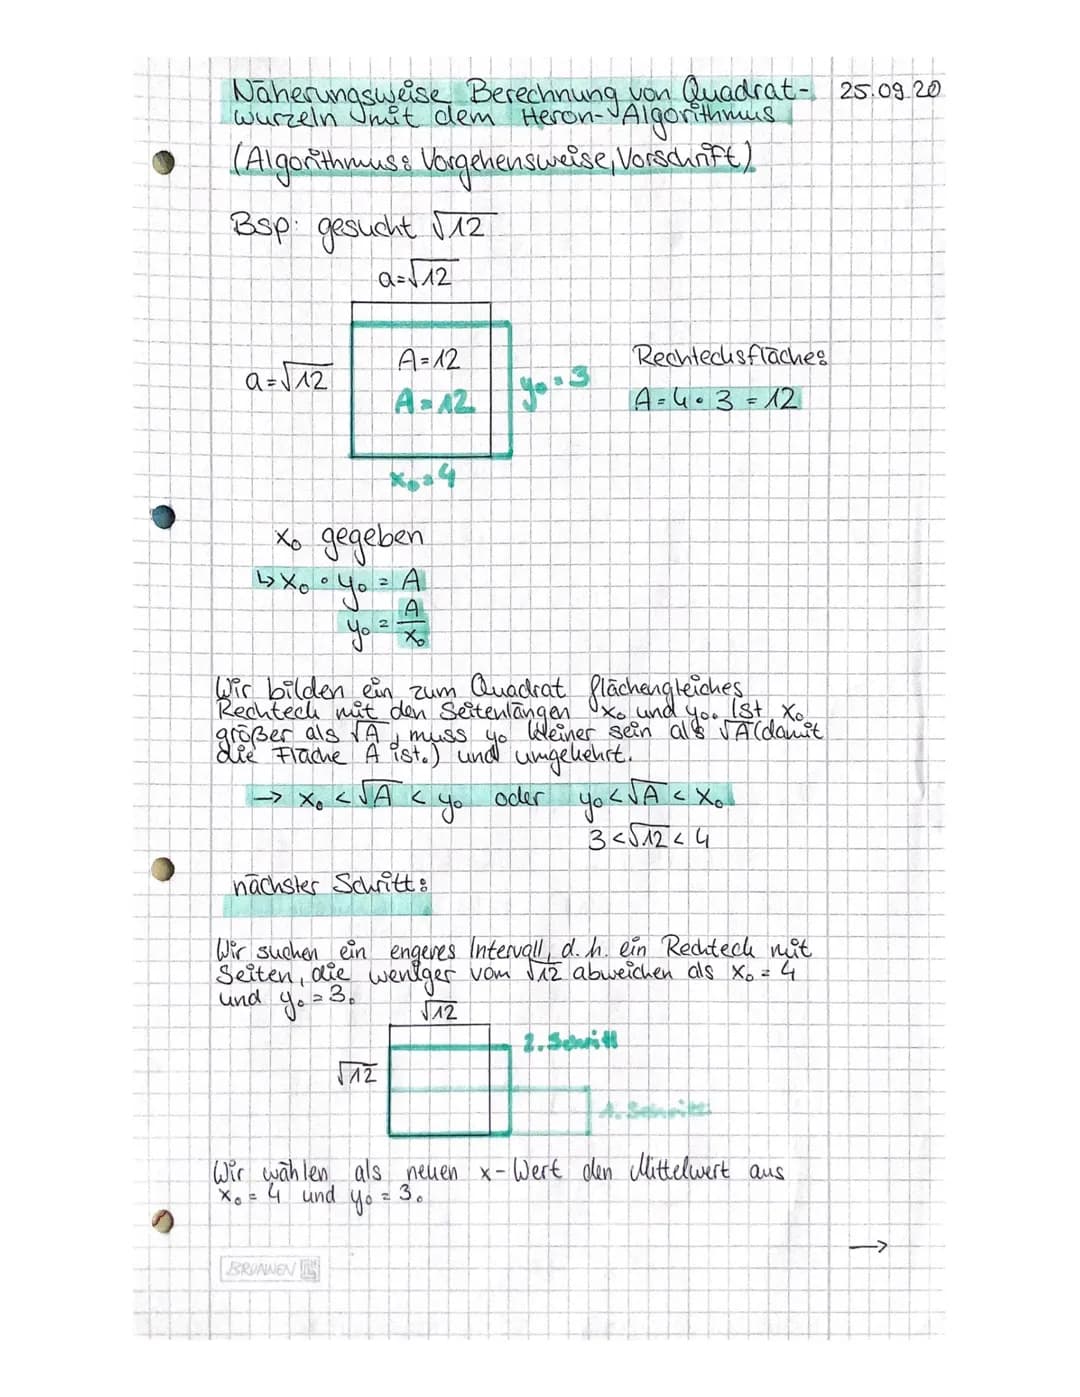 Näherungsweise Berechnung von Quadrat- 25.09.20
wurzeln mit dem Heron-Algorithmus
(Algorithmus: Vorgehensweise, Vorschrift)
Bsp: gesucht √12
a=√12
a=√12
A=12
A=12
y₀=3
x₀=4
Rechtecksfläche:
A=4•3=12
x₀ gegeben
↳x₀•y₀=A
y₀=A/x₀
Wir bilden ein zum Quadrat flächengleiches
Rechteck mit den Seitenlängen x₀ und y₀. Ist x₀
größer als √A, muss y₀ kleiner sein als √A(damit
die Fläche A ist.) und umgekehrt.
→ x₀ < √A < y₀ oder y₀ < √A < x₀
3 < √12 < 4
nächster Schritt:
Wir suchen ein engeres Intervall, d.h. ein Rechteck mit
Seiten, die weniger vom √12 abweichen als x₀ = 4
und y₀ = 3.
√12
2. Schritt
√12
1. Schritt
Wir wählen als neuen x-Wert den Mittelwert aus
x₀ = 4 und y₀ = 3.
→
BRUNNEN